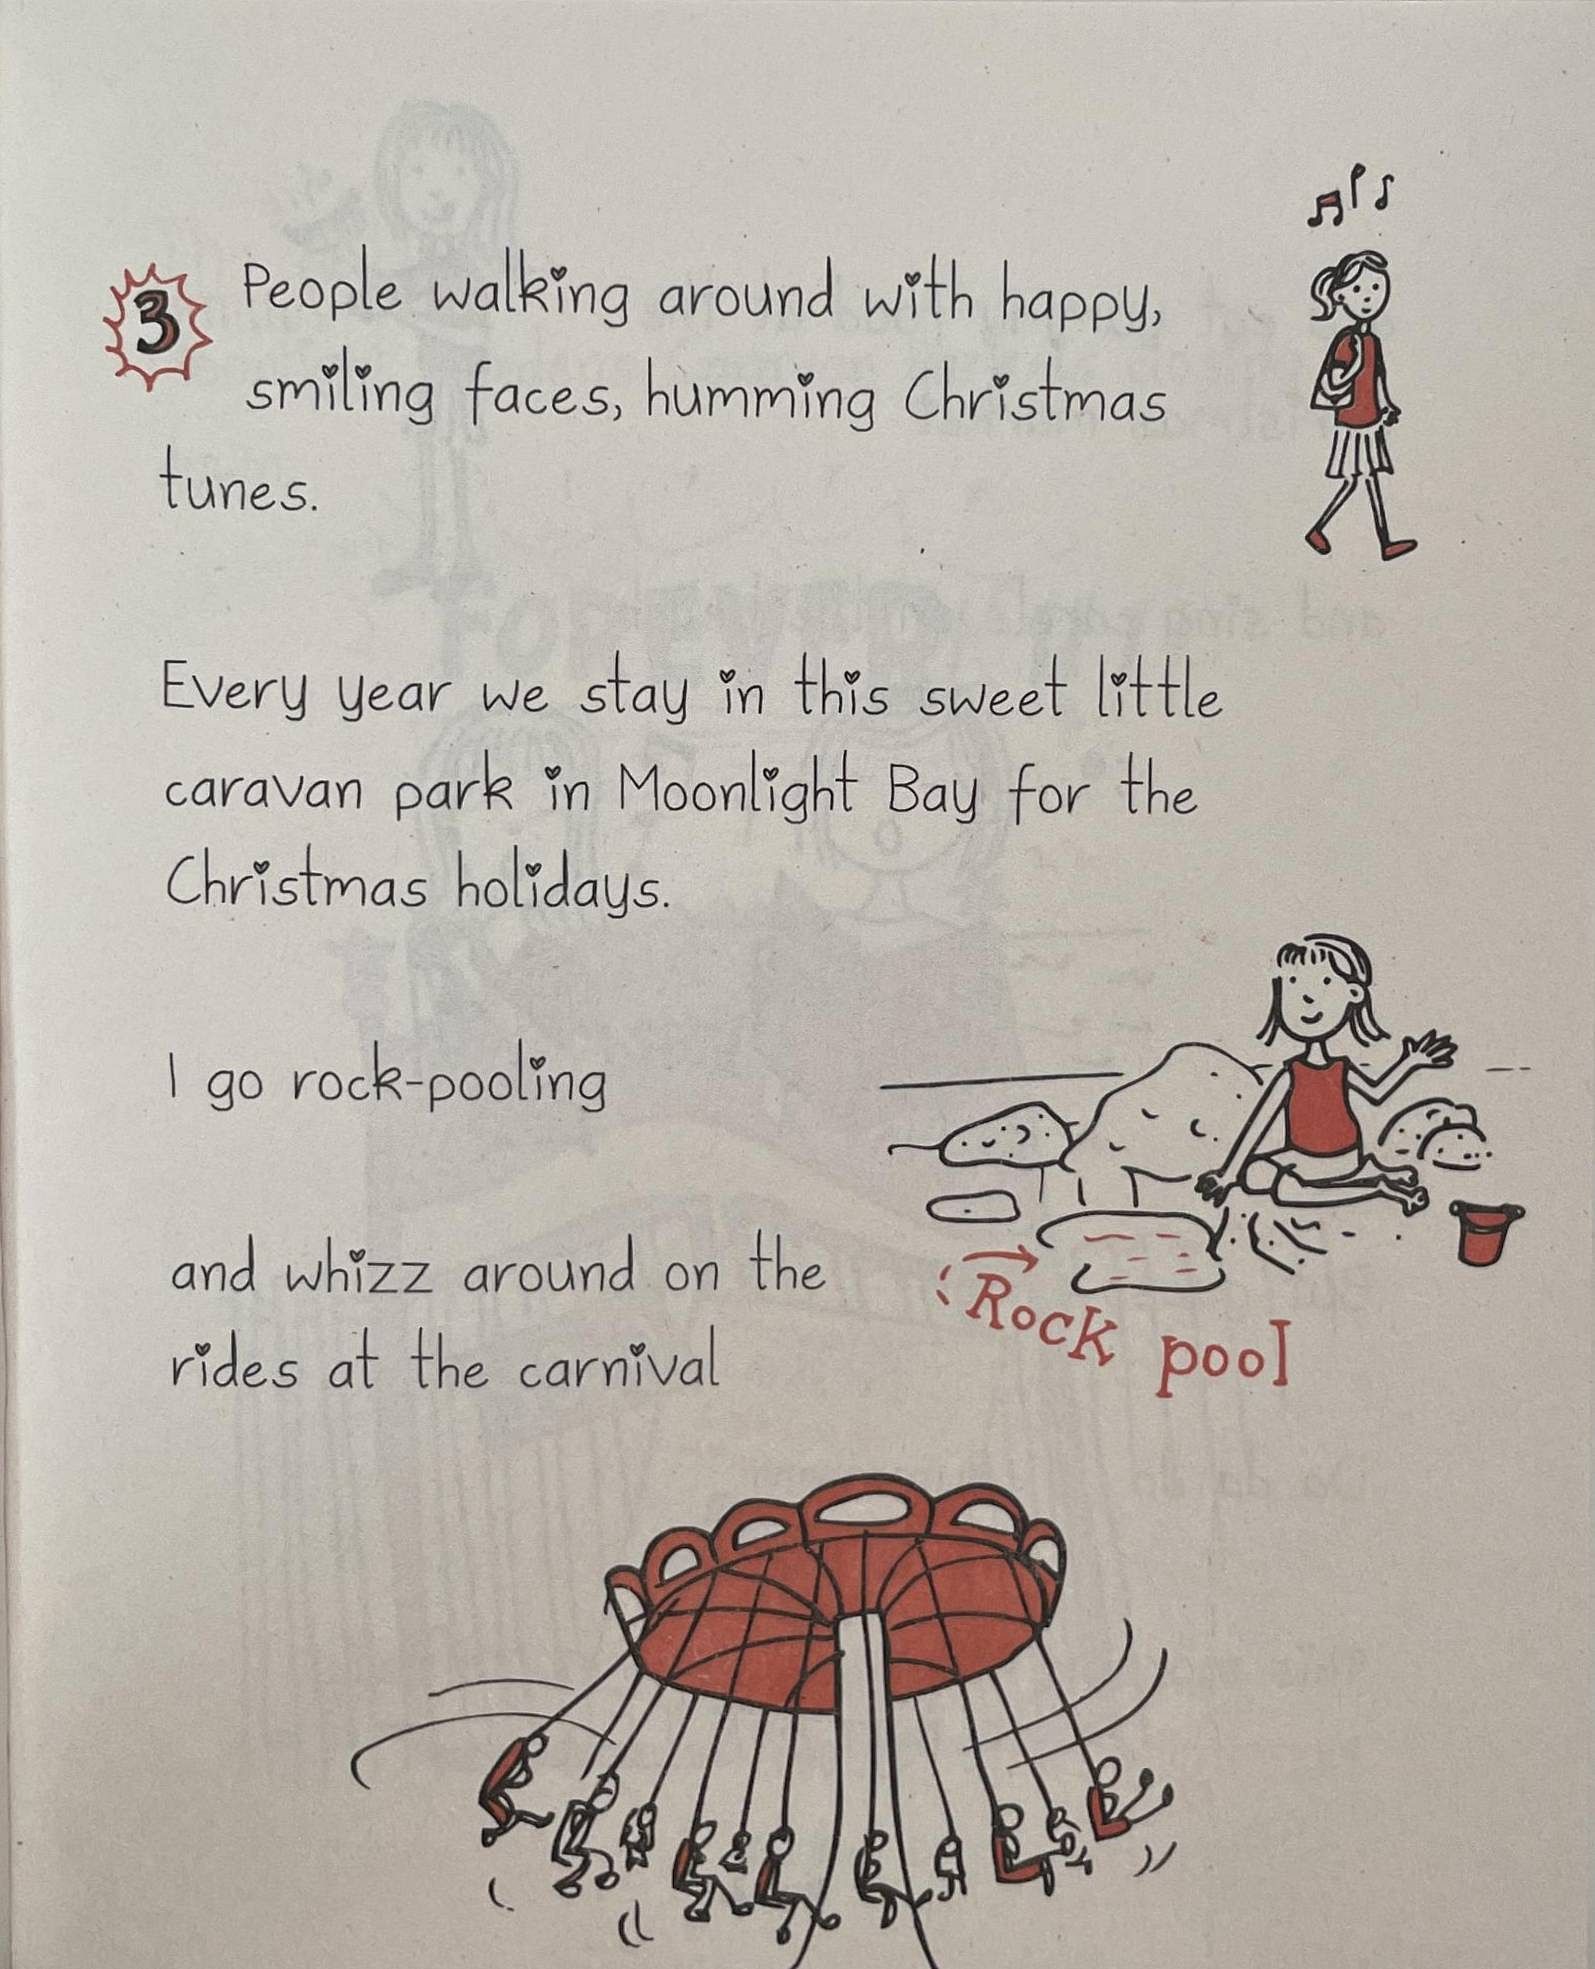 3 People walking around with happy,
smiling faces, humming Christmas
tunes.
Every year we stay in this sweet little
caravan park in Moonlight Bay for the
Christmas holidays.
I go rock-pooling
and whizz around on the
rides at the carnival
Rock pool